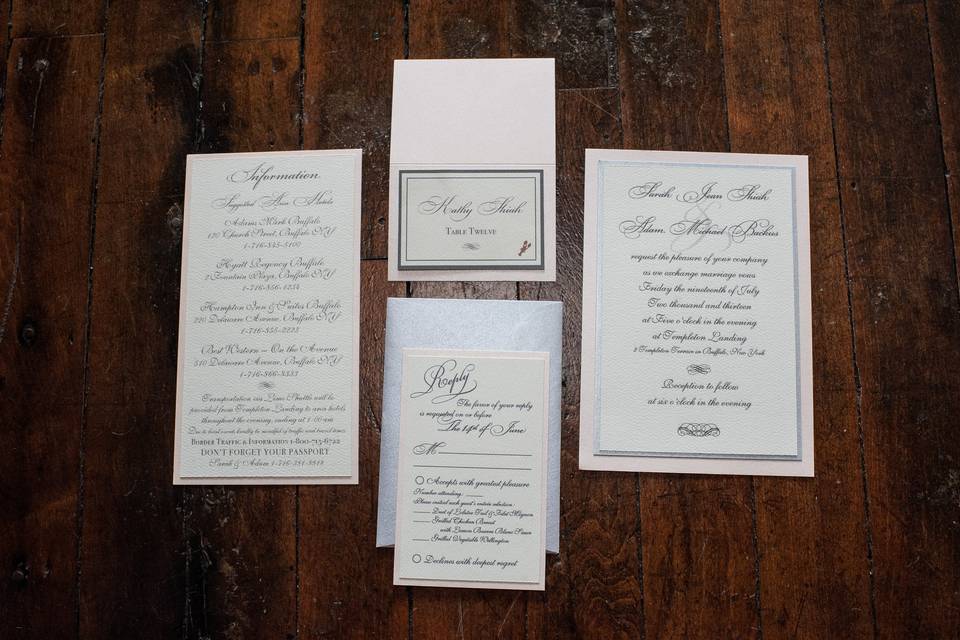 Information
Suggested Area Hotels
Adams Mark Buffalo
120 Church Street, Buffalo NY
1-716-845-5100
Hyatt Regency Buffalo
2 Fountain Plaza, Buffalo NY
1-716-856-1234
Hampton Inn & Suites Buffalo
220 Delaware Avenue, Buffalo NY
1-716-855-2223
Best Western – On the Avenue
510 Delaware Avenue, Buffalo NY
1-716-886-8333
Transportation via Limo Shuttle will be
provided from Templeton Landing to area hotels
throughout the evening, ending at 1:00 am
Due to travel needs kindly be mindful of traffic and travel times
BORDER TRAFFIC & INFORMATION 1-800-715-6722
DON'T FORGET YOUR PASSPORT
Sarah & Adam 1-716-381-8818
Kathy Shiah
TABLE TWELVE
Reply
The favor of your reply
is requested on or before
The 14th of June
M
Accepts with greatest pleasure
Number attending:
Please initial each guest's entrée selection
Duet of Lobster Tail & Filet Mignon
Grilled Chicken Breast
with Lemon Beurre Blanc Sauce
Grilled Vegetable Wellington
Declines with deepest regret
Sarah Jean Shiah
&
Adam Michael Backus
request the pleasure of your company
as we exchange marriage vows
Friday the nineteenth of July
Two thousand and thirteen
at Five o'clock in the evening
at Templeton Landing
2 Templeton Terrace in Buffalo, New York
Reception to follow
at six o'clock in the evening